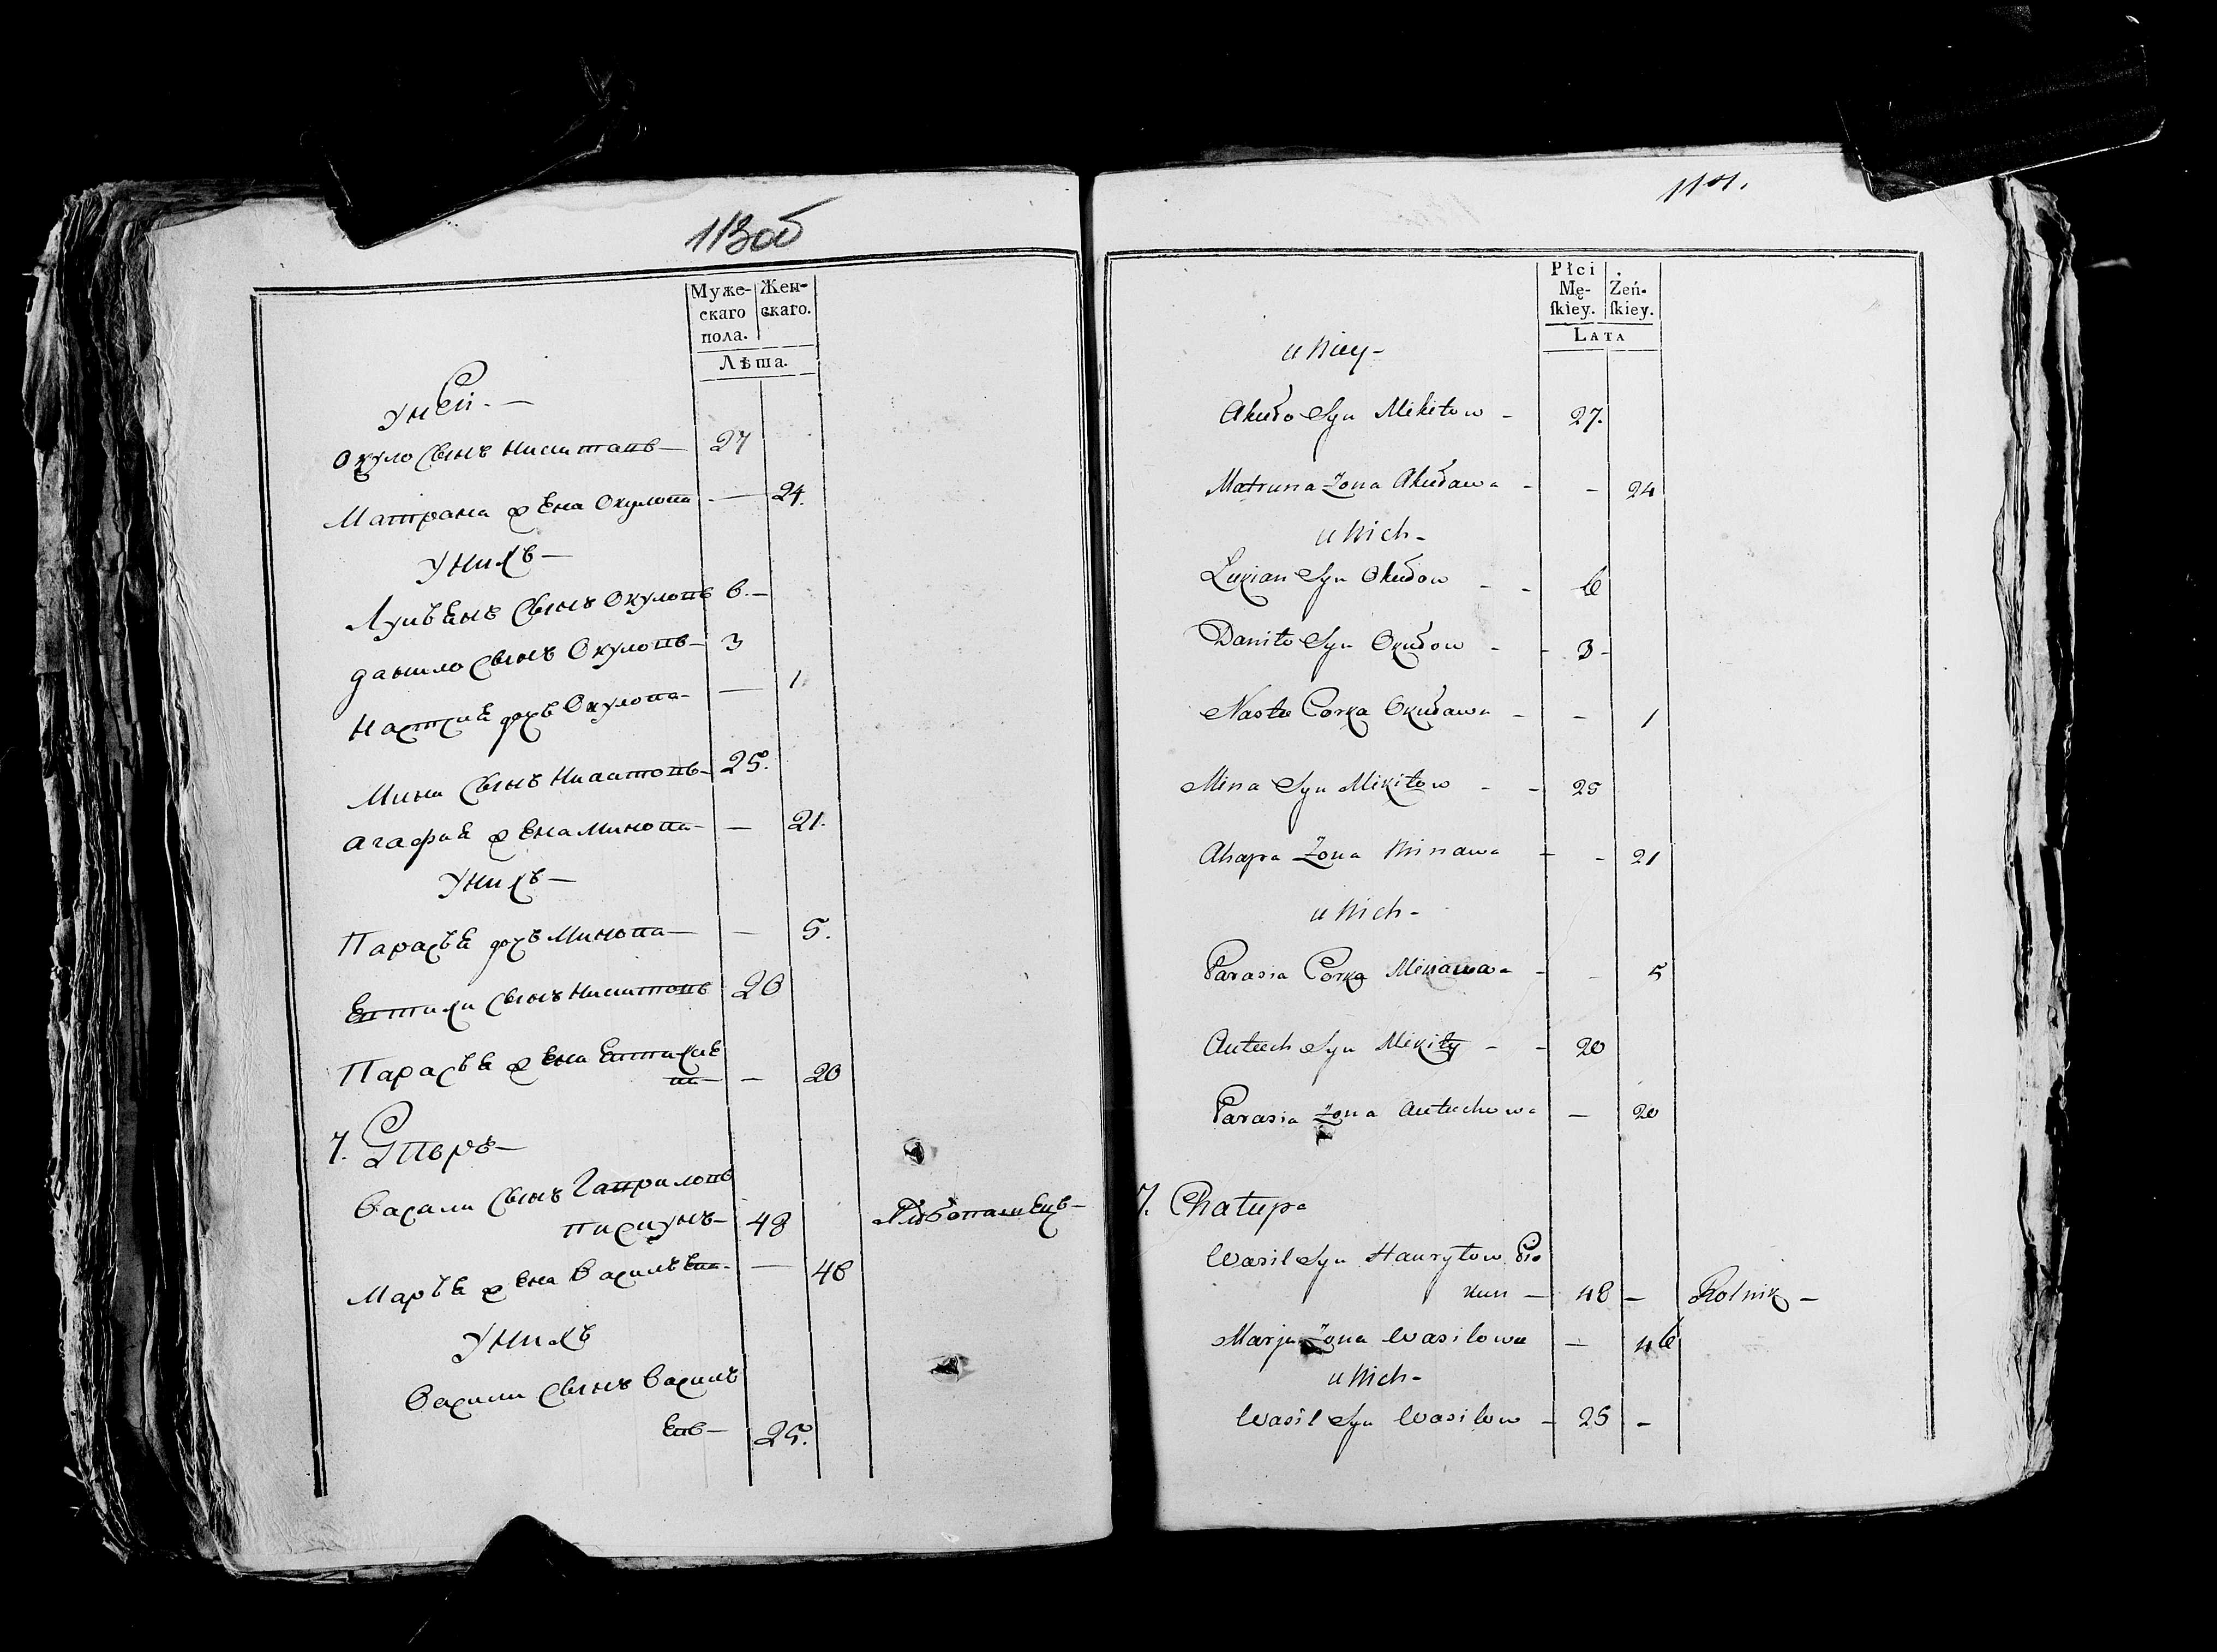 113об
Муже-
скаго
пола.
Жен-
скаго.
Лѣта.
У ней. —
Окуло сынъ Никитовъ — 27
Матрана жена Окулова — 24.
У нихъ —
Лукьянъ сынъ Окуловъ 6. —
Данило сынъ Окуловъ — 3
Настсия дочь Окулова — 1.
Мина сынъ Никитовъ — 25.
Агафия жена Минова — 21.
У нихъ —
Парасья дочь Минова — 5.
Евтихи сынъ Никитовъ 20
Парасья жена Евтихие
ва — 20
7. Дворъ —
Васили сынъ Гавриловъ
пискунъ — 48 Хлѣбопашецъ —
Марья жена Васильева — 46
У нихъ
Васили сынъ Василь
евъ — 25.
114.
Płci
Mę-
ſkiey.
Żeń-
ſkiey.
LATA
u Niey -
Akuło Syn Mikitow - 27.
Matruna Żona Akuława - - 24
u Nich -
Lukian Syn Okułow - - 6
Daniło Syn Okułow - - 3 -
Nasta Corka Okuława - - 1
Mina Syn Mikitow - - 25
Ahapa Żona Minawa - - 21
u Nich -
Parasia Corka Minawa - - 5
Autuch Syn Mikity - - 20
Parasia Żona Autuchowa — 20
7. Chatupa
Wasil Syn Hauryłow Pis
kun — 48 — Rolnik —
Marja Żona Wasilowa — 46
u Nich -
Wasil Syn Wasilow - 25 -